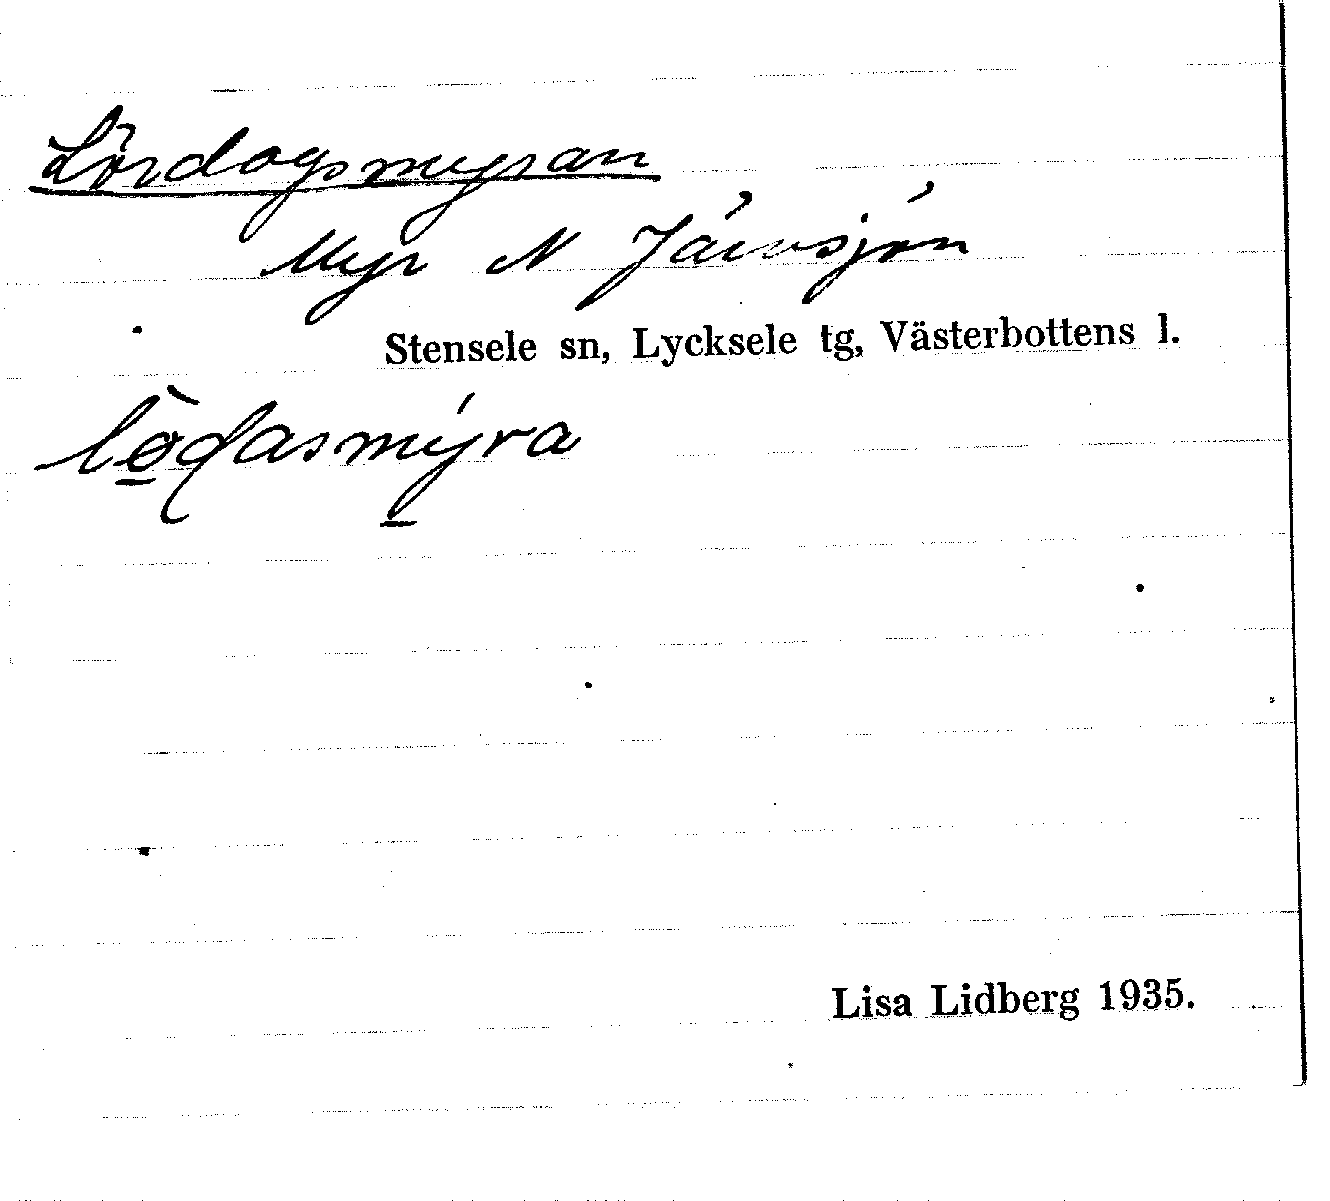 Lördagsmyran
Myr N Järvsjön
Stensele sn, Lycksele tg, Västerbottens l.
lö̀dasmýra
Lisa Lidberg 1935.